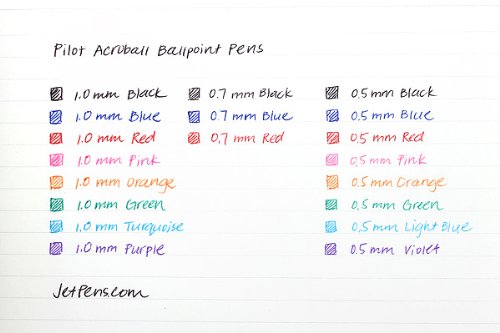 Pilot Acroball Ballpoint Pens
1.0 mm Black 0.7 mm Black 0.5 mm Black
1.0 mm Blue 0.7 mm Blue 0.5 mm Blue
1.0 mm Red 0.7 mm Red 0.5 mm Red
1.0 mm Pink 0.5 mm Pink
1.0 mm Orange 0.5 mm Orange
1.0 mm Green 0.5 mm Green
1.0 mm Turquoise 0.5 mm Light Blue
1.0 mm Purple 0.5 mm Violet
JetPens.com